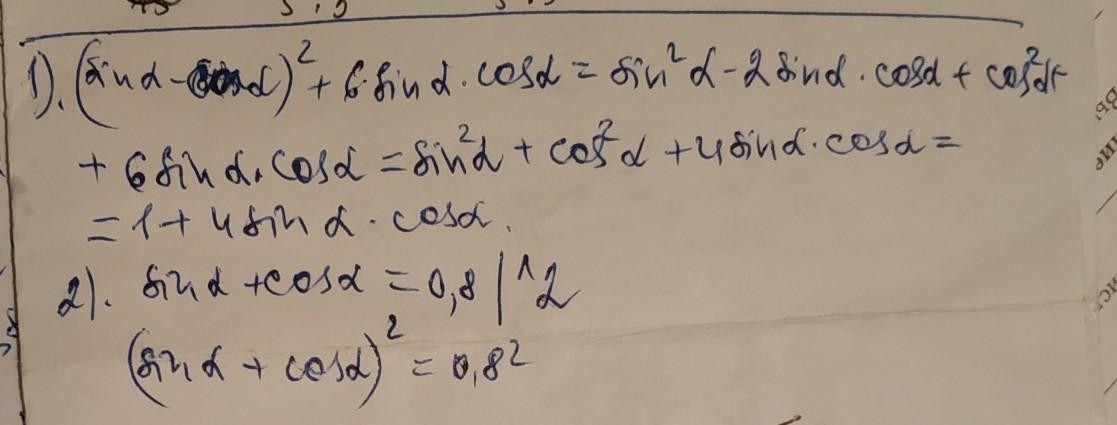 1). (sin α - cos α)² + 6 sin α · cos α = sin² α - 2 sin α · cos α + cos² α +
+ 6 sin α · cos α = sin² α + cos² α + 4 sin α · cos α =
= 1 + 4 sin α · cos α.
2). sin α + cos α = 0,8 | ^2
(sin α + cos α)² = 0,8²